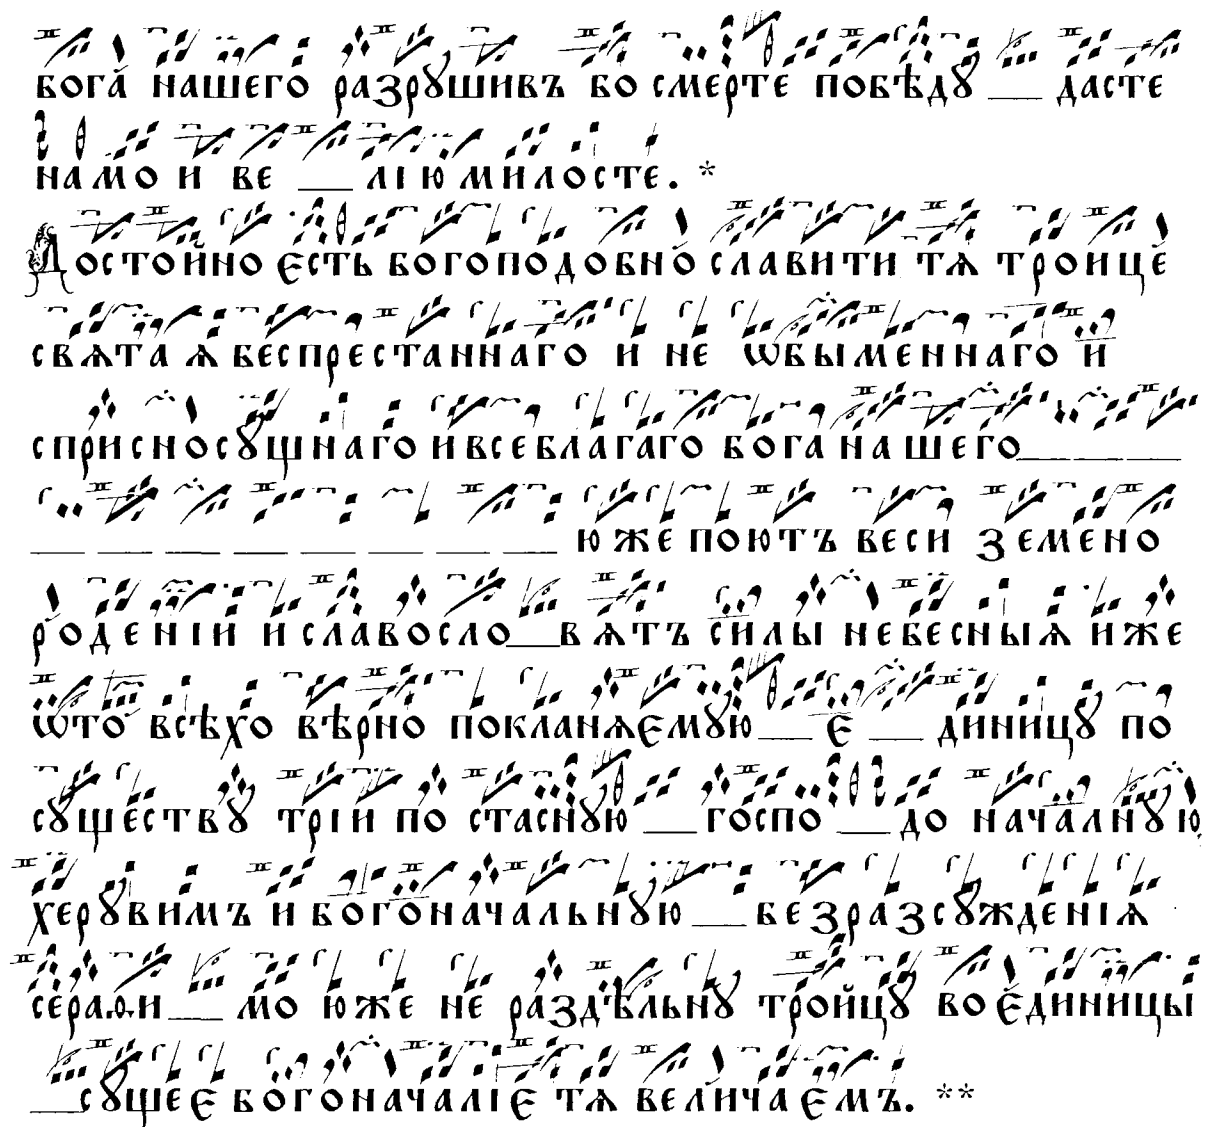 бога́ нашего разрꙋшивъ во смерте побѣдꙋ __ дасте
намо и ве __ лію милосте. *
Достойно єсть богоподобно славити тѧ троице
свѧта ѧ беспрестаннаго и не ѡбыменнаго й
сприсносꙋщнаго и всеблагаго бога нашего __ __ __
__ __ __ __ __ __ __ __ юже поютъ веси земено
роденіи и славосло__вѧтъ силы небесныѧ иже
ѡто всѣхо вѣрно покланѧємꙋю __ є __ диницꙋ по
сꙋществꙋ тріи по стаснꙋю __ госпо __ до началнꙋю
херꙋвимъ и богоначальнꙋю __ безразсꙋжденіѧ
сераѳи __ мо юже не раздѣльнꙋ тройцꙋ во єдиницы
__ сꙋщеє богоначаліє тѧ величаємъ. **